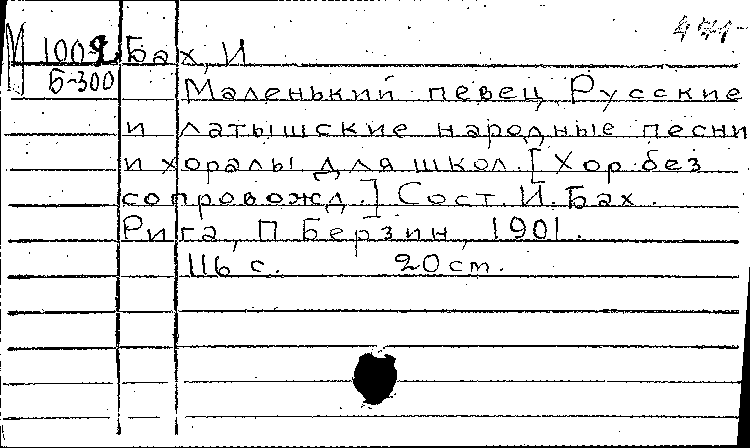 471-
М 1002 Бах, И
Б-300
Маленький певец. Русские
и латышские народные песни
и хоралы для школ. [Хор без
сопровожд.] Сост. И. Бах.
Рига, П. Берзин, 1901.
116 с. 20 см.